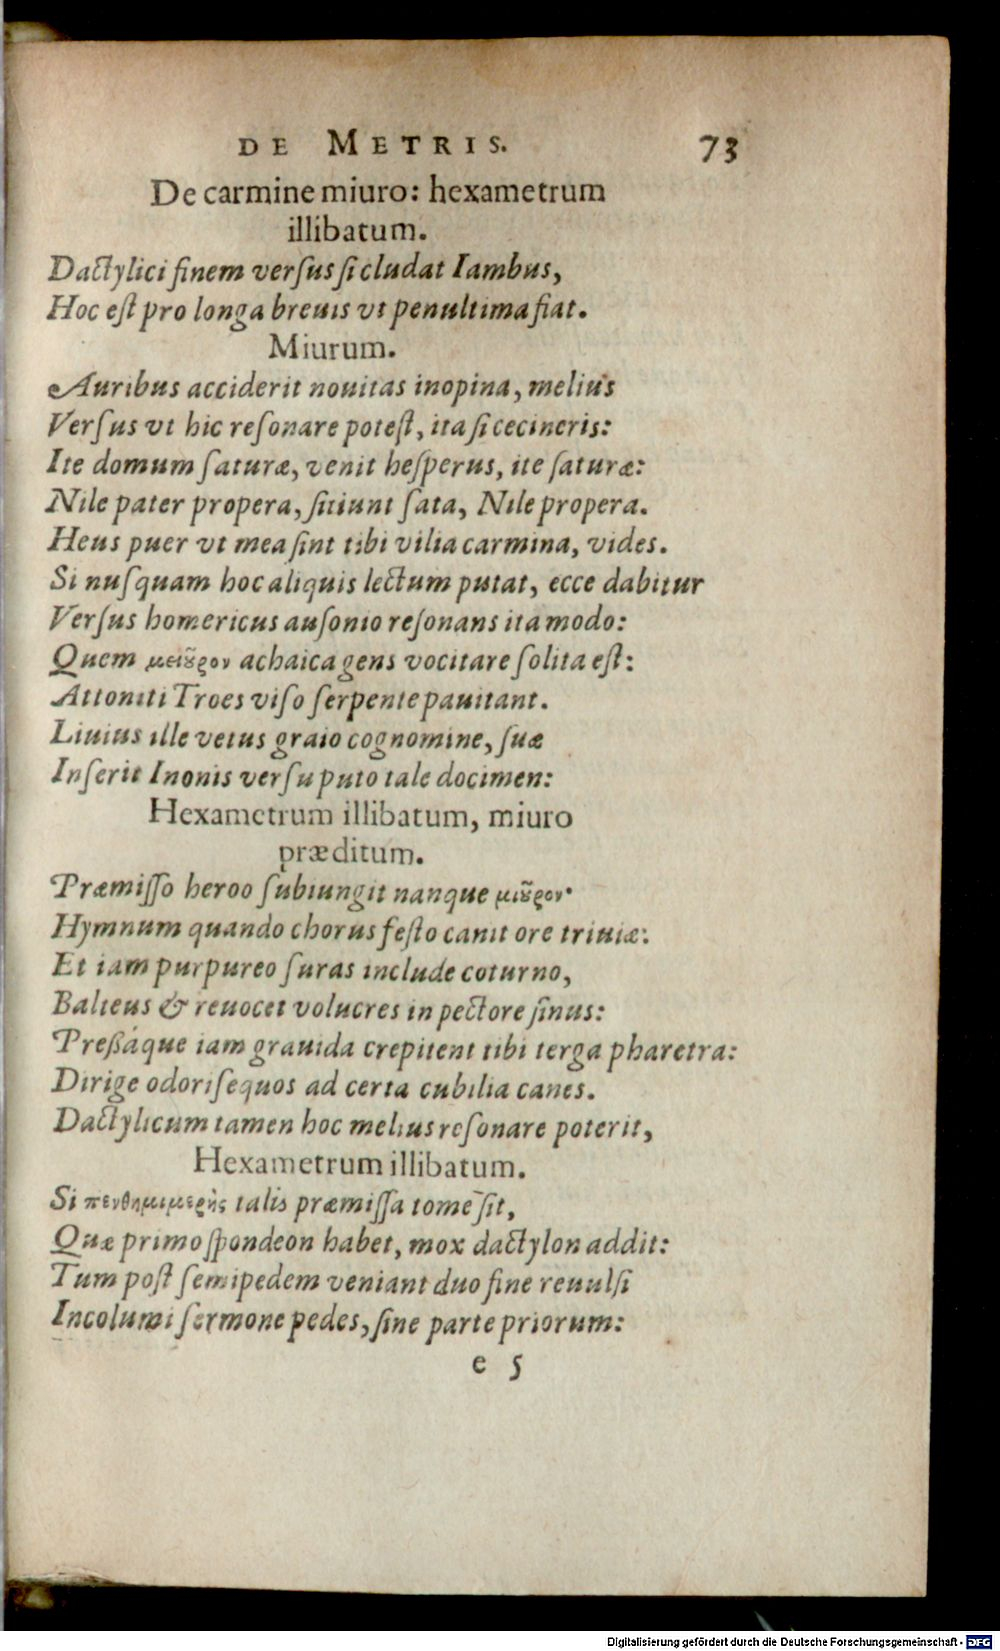 DE METRIS. 73
De carmine miuro: hexametrum
illibatum.
Dactylici finem verſus ſi cludat Iambus,
Hoc eſt pro longa breuis vt penultima fiat.
Miurum.
Auribus acciderit nouitas inopina, melius
Verſus vt hic reſonare poteſt, ita ſi cecineris:
Ite domum ſaturæ, venit heſperus, ite ſaturæ:
Nile pater propera, ſitiunt ſata, Nile propera.
Heus puer vt mea ſint tibi vilia carmina, vides.
Si nuſquam hoc aliquis lectum putat, ecce dabitur
Verſus homericus auſonio reſonans ita modo:
Quem μείȣρον achaica gens vocitare ſolita eſt:
Attoniti Troes viſo ſerpente pauitant.
Liuius ille vetus graio cognomine, ſuæ
Inſerit Inonis verſu puto tale docimen:
Hexametrum illibatum, miuro
præditum.
Præmiſſo heroo ſubiungit nanque μιȣ͂ρον·
Hymnum quando chorus feſto canit ore triuiæ:
Et iam purpureo ſuras include coturno,
Balteus & reuocet volucres in pectore ſinus:
Preßáque iam grauida crepitent tibi terga pharetra:
Dirige odoriſequos ad certa cubilia canes.
Dactylicum tamen hoc melius reſonare poterit,
Hexametrum illibatum.
Si πενθημιμερὴς talis præmiſſa tome ſit,
Quæ primo ſpondeon habet, mox dactylon addit:
Tum poſt ſemipedem veniant duo fine reuulſi
Incolumi ſermone pedes, ſine parte priorum:
e 5
Digitalisierung gefördert durch die Deutsche Forschungsgemeinschaft - DFG